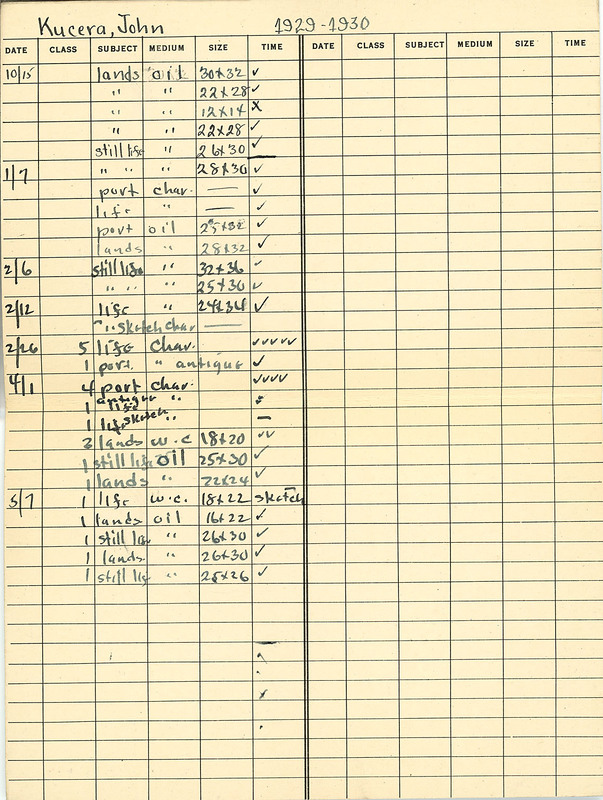 Kucera, John 1929-1930
DATE CLASS SUBJECT MEDIUM SIZE TIME DATE CLASS SUBJECT MEDIUM SIZE TIME
10/15 lands oil 30x32 ✓
" " 22x28 ✓
" " 12x14 x
" " 22x28 ✓
still life " 26x30 ✓
1/7 " " " 28x30 ✓
port char. — ✓
life " — ✓
port oil 25x32 ✓
lands " 28x32 ✓
2/6 still life " 32x36 ✓
" " " 25x30 ✓
2/12 life " 24x34 ✓
" " sketch char —
2/26 5 life char. ✓✓✓✓✓
1 port. " antique ✓
4/1 4 port char. ✓✓✓✓
1 antique life "
1 life sketch " —
3 lands w.c 18x20 ✓✓
1 still life oil 25x30 ✓
1 lands " 22x24 ✓
5/7 1 life w.c. 18x22 sketch
1 lands oil 16x22 ✓
1 still life " 26x30 ✓
1 lands " 26x30 ✓
1 still life " 25x26 ✓